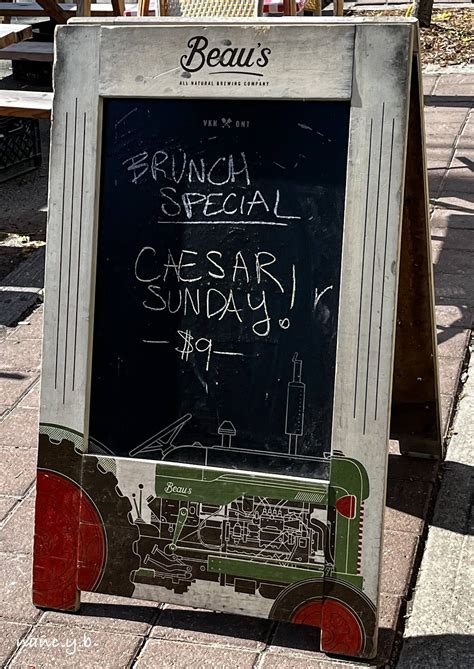 Beau's
ALL NATURAL BREWING COMPANY
VKH ONT
BRUNCH
SPECIAL
CAESAR
SUNDAY!
—$9—
Beau's
nanc.y.b.